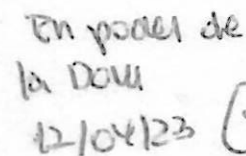 En poder de
la Dova
12/04/23 (